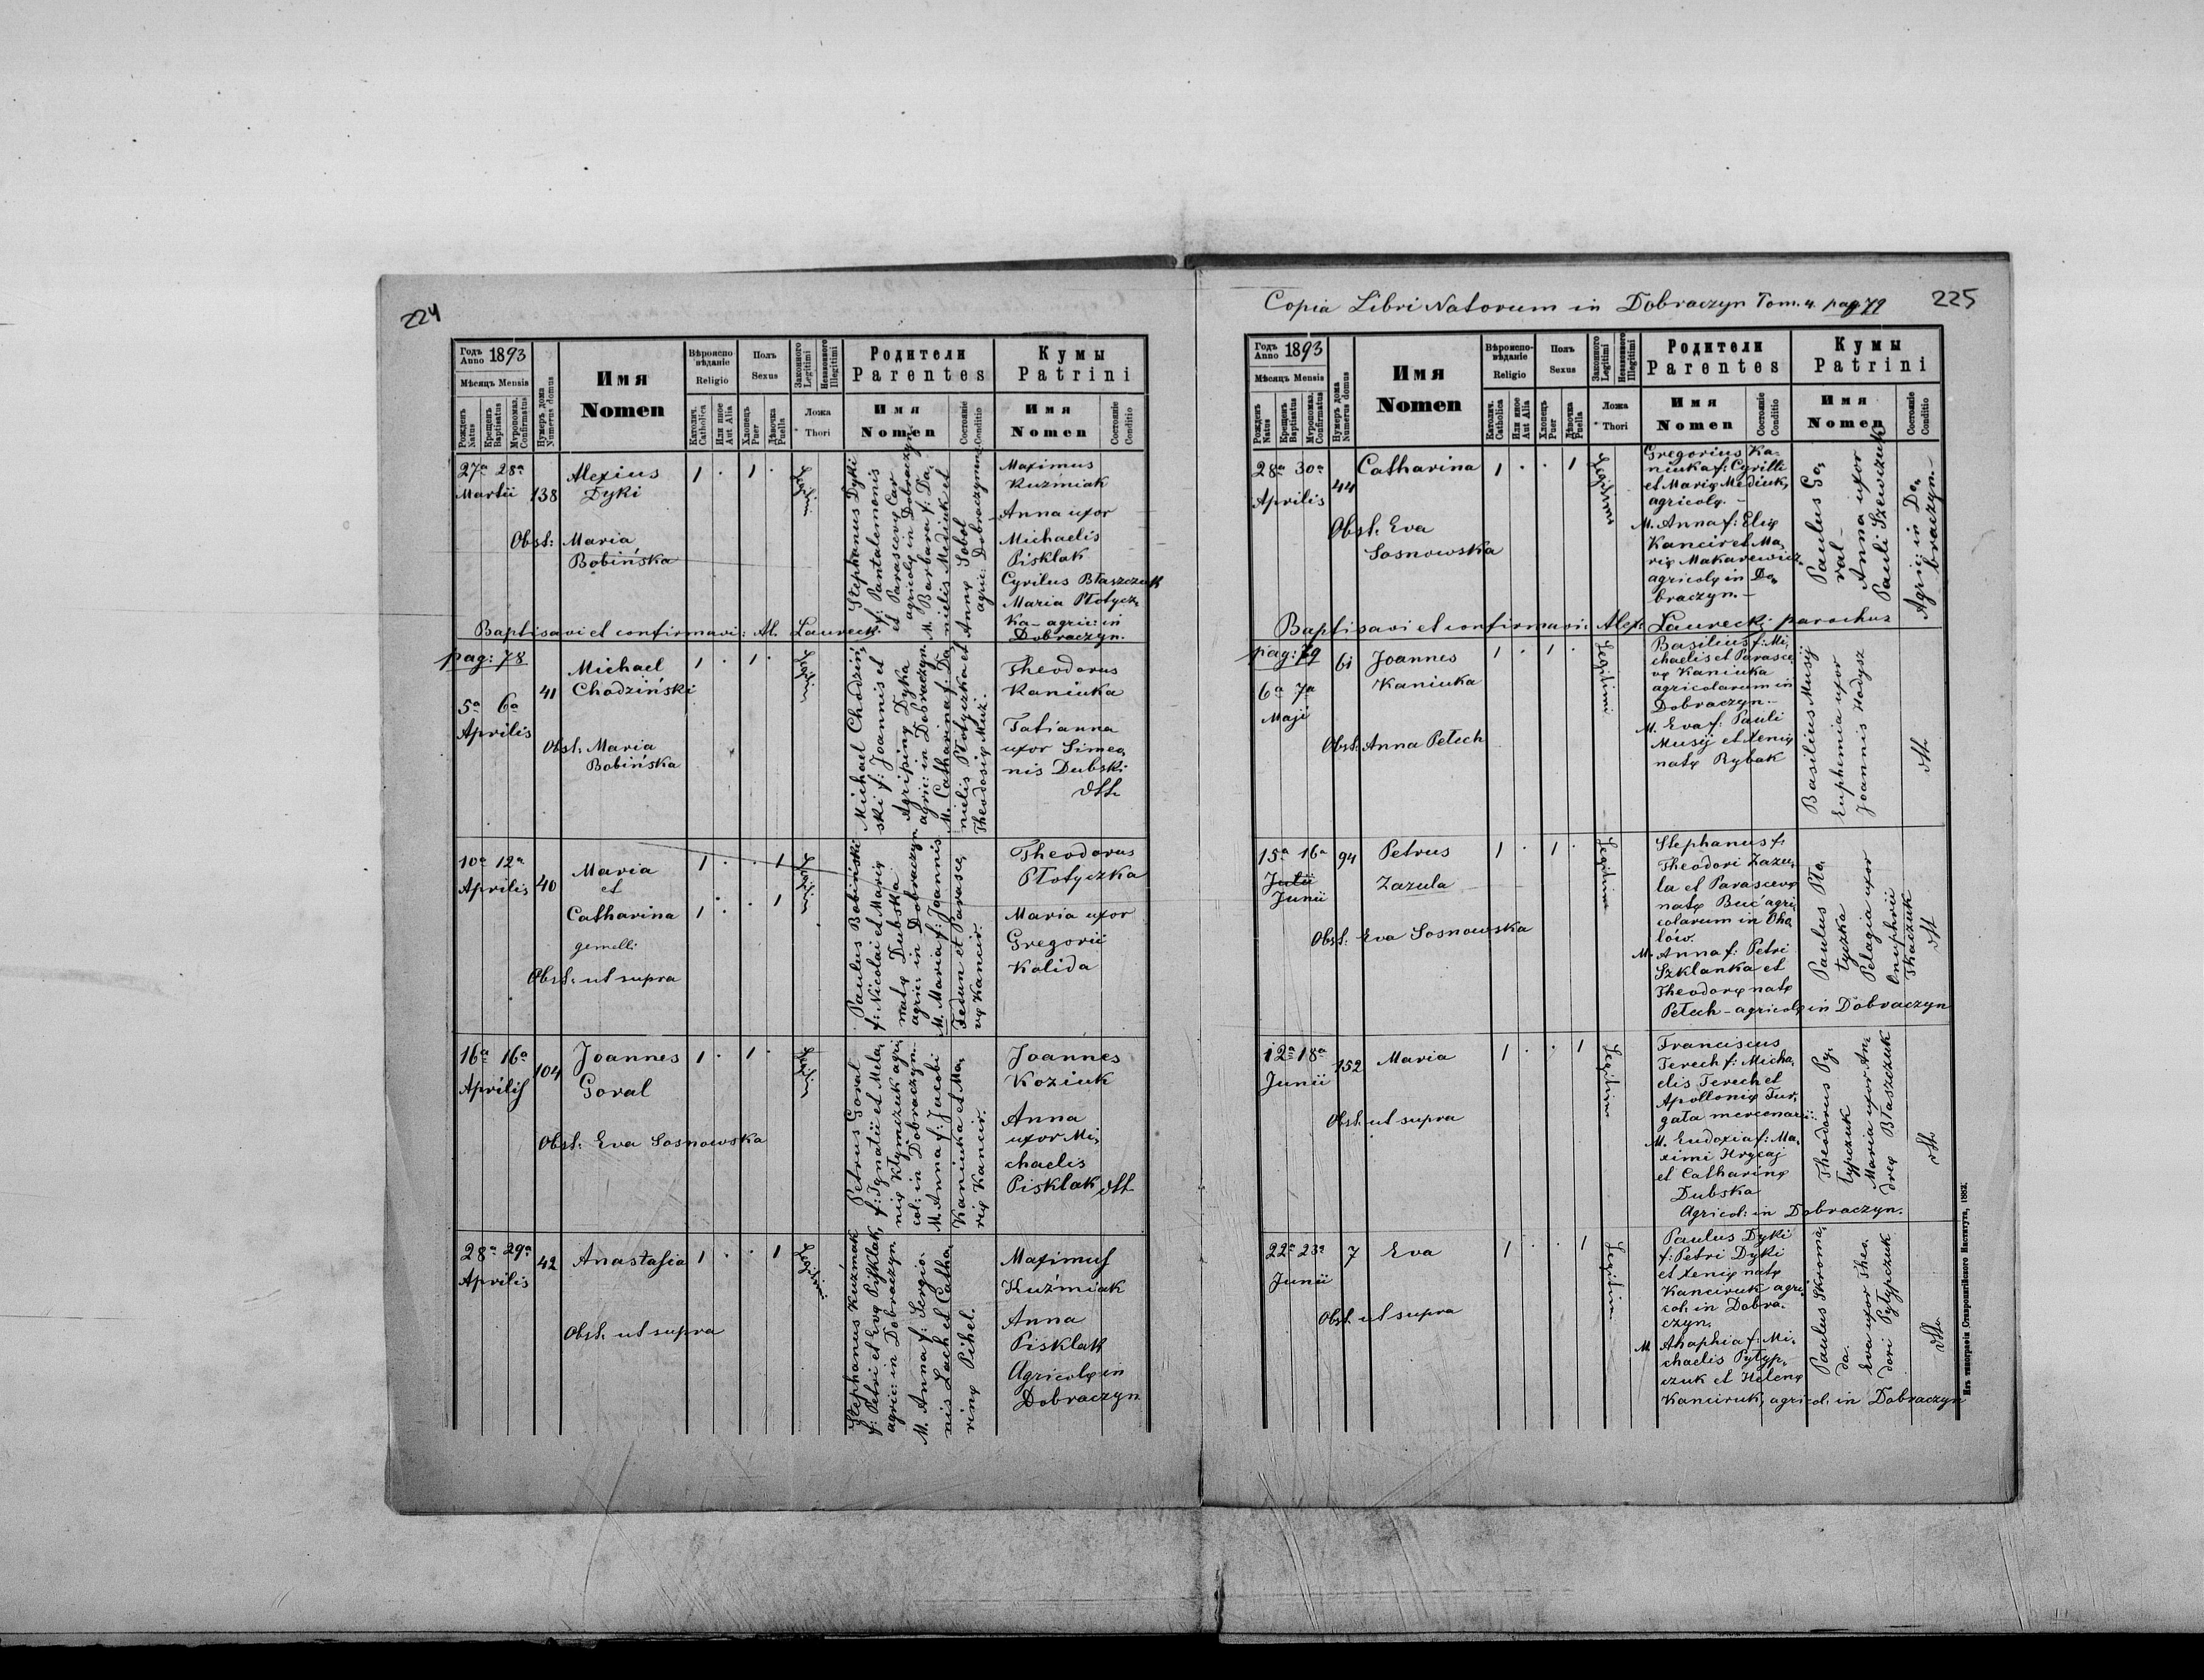 224
Годъ Anno 1893
Мѣсяцъ Mensis
Рожденъ Natus
Крещенъ Baptisatus
Мѵропомаз. Confirmatus
Нумеръ дома Numerus domus
Имя
Nomen
Вѣроиспо-вѣданіе
Religio
Католич. Catholica
Или иное Aut Alia
Полъ
Sexus
Хлопецъ Puer
Дѣвочка Puella
Законного Legitimi
Незаконного Illegitimi
Ложа
Thori
Родители
Parentes
Имя
Nomen
Состояніе Conditio
Кумы
Patrini
Имя
Nomen
Состояніе Conditio
27a 28a
Martii
138
Alexius
Dyki
1 . 1 .
Legitim
Obst: Maria
Bobińska
Stephanus Dyki
f: Pantalemonis
et Parascevę Car
agricolę in Dobraczyn
M. Barbara f: Da,
nielis Mediuk et
Annę Sobol
agric: Dobraczynens
Maximus
Kuzmiak
Anna uxor
Michaelis
Pisklak
Cyrilus Błaszczuk
Maria Płotycz,
ka - agric: in
Dobraczyn.
Baptisavi et confirmavi: Al. Laurecki
pag: 78
5a 6a
Aprilis
41
Michael
Chodziński
1 . 1 .
Legitim
Obst: Maria
Bobińska
Michael Chodziń,
ski f: Joannis et
Agripinę Dyka
agric: in Dobraczyn.
M. Catharina f: Da
nielis Płotyczka et
Theodosię Muz.
Theodorus
Kaniuka
Tatianna
uxor Simeo,
nis Dubski
dtt
10a 12a
Aprilis
40
Maria
et
Catharina
gemelli
1 . . 1
1 . . 1
Legitim
Obst: ut supra
Paulus Bobiński
f: Nicolai et Marię
natę Dubska
agric: in Dobraczyn
M. Maria f: Joannis
Fedun et Parasce,
vę Kancir.
Theodorus
Płotyczka
Maria uxor
Gregorii
Kolida
16a 16a
Aprilis
104
Joannes
Goral
1 . 1 .
Legitim
Obst: Eva Sosnowska
Petrus Goral
f: Ignatii et Mela,
nię Kłymczuk agri
col: in Dobraczyn.
M. Anna f: Jacobi
Kaniuka et Ma,
rię Kancir.
Joannes
Koziuk
Anna
uxor Mi,
chaelis
Pisklak dtt
28a 29a
Aprilis
42
Anastasia
1 . . 1
Legitimi
Obst: ut supra
Stephanus Kuźmiak
f: Petri et Evę Pisklak,
agric: in Dobraczyn.
M. Anna f: Sergio.
nis Lach et Catha,
rinę Pihel.
Maximus
Kuźmiak
Anna
Pisklak
Agricolę in
Dobraczyn
Copia Libri Natorum in Dobraczyn Tom. 4. pag 79
225
Годъ Anno 1893
Мѣсяцъ Mensis
Рожденъ Natus
Крещенъ Baptisatus
Мѵропомаз. Confirmatus
Нумеръ дома Numerus domus
Имя
Nomen
Вѣроиспо-вѣданіе
Religio
Католич. Catholica
Или иное Aut Alia
Полъ
Sexus
Хлопецъ Puer
Дѣвочка Puella
Законного Legitimi
Незаконного Illegitimi
Ложа
Thori
Родители
Parentes
Имя
Nomen
Состояніе Conditio
Кумы
Patrini
Имя
Nomen
Состояніе Conditio
28a 30a
Aprilis
44
Catharina
1 . . 1
Legitimi
Obst: Eva
Sosnowska
Gregorius Ka-
niuka f: Cyrilli
et Marię Mediuk,
agricolę. -
M. Anna f: Elię
Kancir et Ma,
rię Makarewicz,
agricolę in Do,
braczyn. -
Paulus Go,
ral -
Anna uxor
Pauli Szewczuk
Agric: in Do,
braczyn.-
Baptisavi et confirmavi: Alex: Laurecki parochus
pag: 79
6a 7a
Maji
61
Joannes
Kaniuka
1 . 1 .
Legitimi
Obst: Anna Petech
Basilius f: Mi,
chaelis et Parasce,
vę Kaniuka
agricolarum in
Dobraczyn.-
M. Eva f: Pauli
Musij et Xenię
natę Rybak
Basilius Musij
Euphemia uxor
Joannis Hodysz
dtt
15a 16a
Julii
Junii
94
Petrus
Zazula
1 . 1 .
Legitimi
Obst: Eva Sosnowska
Stephanus f:
Theodori Zazu,
la et Parascevę
natę Buć agri,
colarum in Oha,
lów.
M. Anna f: Petri
Szklanka et
Theodorę natę
Petech - agricolę in Dobraczyn
Paulus Pło,
tyczka
Pelagia uxor
Onuphrii
Tkaczuk
dtt
12a 18a
Junii
152
Maria
1 . . 1
Legitimi
Obst: ut supra
Franciscus
Terech f: Micha,
elis Terech et
Apollonię Tur,
gała mercenarii:
M. Eudoxia f: Ma,
ximi Hrycaj
et Catharinę
Dubska
Agricol: in Dobraczyn.
Theodorus Py,
łypczuk
Maria uxor An,
dreę Błaszczuk
dtt
22a 23a
Junii
7
Eva
1 . . 1
Legitimi
Obst: ut supra
Paulus Dyki
f: Petri Dyki
et Xenię natę
Kanciruk agri,
col: in Dobra,
czyn.
M. Ahaphia f: Mi,
chaelis Pyłyp,
czuk et Helenę
Kanciruk, agricol: in Dobraczyn
Paulus Skromá,
da.
Eva uxor Theo,
dori Pyłypczuk
dtt
Изъ типографіи Ставропигійского Института, 1882.